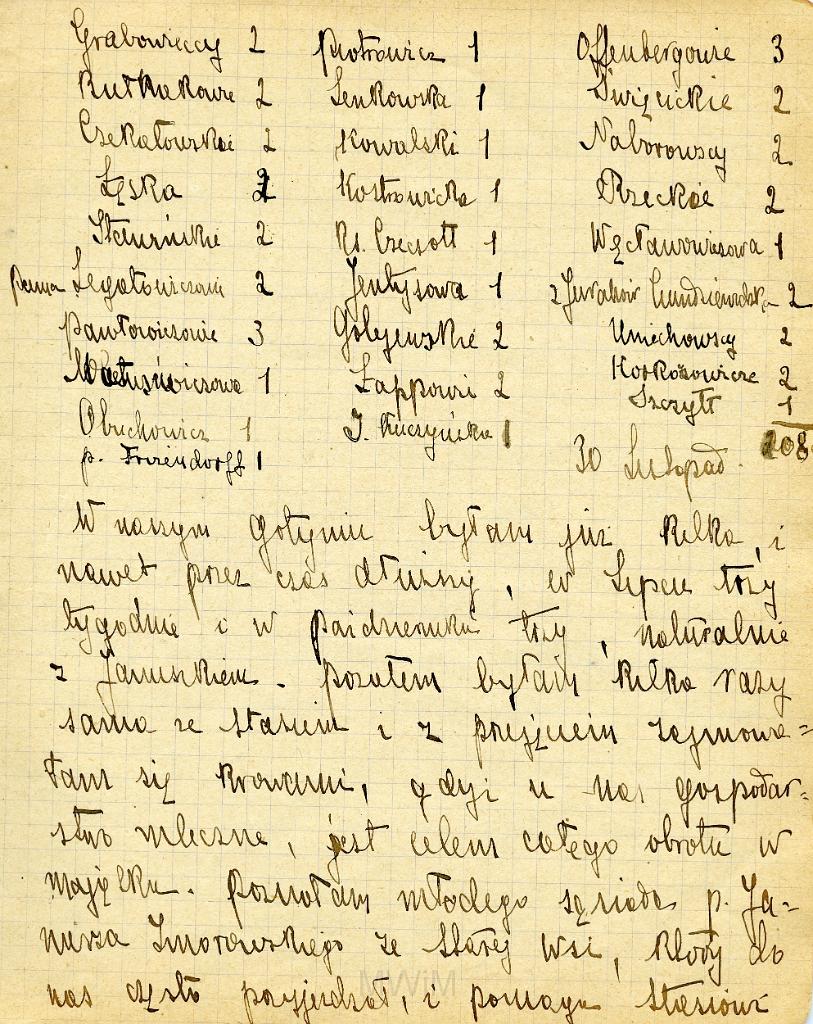 Grabowieccy 2
Rutkakowie 2
Czekałowskie 2
Łęska 2
Stawińskie 2
panna Legatowiczowie 2
Pawłowiczowie 3
Matusewiczowa 1
Obuchowicz 1
p. 1
Piotrowicz 1
Senkowska 1
Kowalski 1
Kostrowicka 1
Ks. Czeczott 1
Jentysowa 1
Gołyewskie 2
Łappowie 2
J. Kuczyńska 1
Offenbergowie 3
Święcickie 2
Naborowscy 2
Rzeckie 2
Węcławowiczowa 1
z 2
Uniechowscy 2
Korkozowicze 2
Szczytt 1
108
30 Listopad.
W naszym Gołyniu byłam już kilka, i
nawet przez czas dłuższy, w Lipcu trzy
tygodnie i w Październiku trzy, naturalnie
z Januszkiem. Pozatem byłam kilka razy
sama ze Stasiem i z przyjęciem zajmowa=
łam się krowami, gdyż u nas gospodar=
stwo mleczne, jest celem całego obrotu w
majątku. Poznałam młodego sąsiada p. Ja-
nusza Zmorowskiego ze Starej Wsi, który do
nas często przyjeżdżał, i pomaga Stasiowi
MWiM